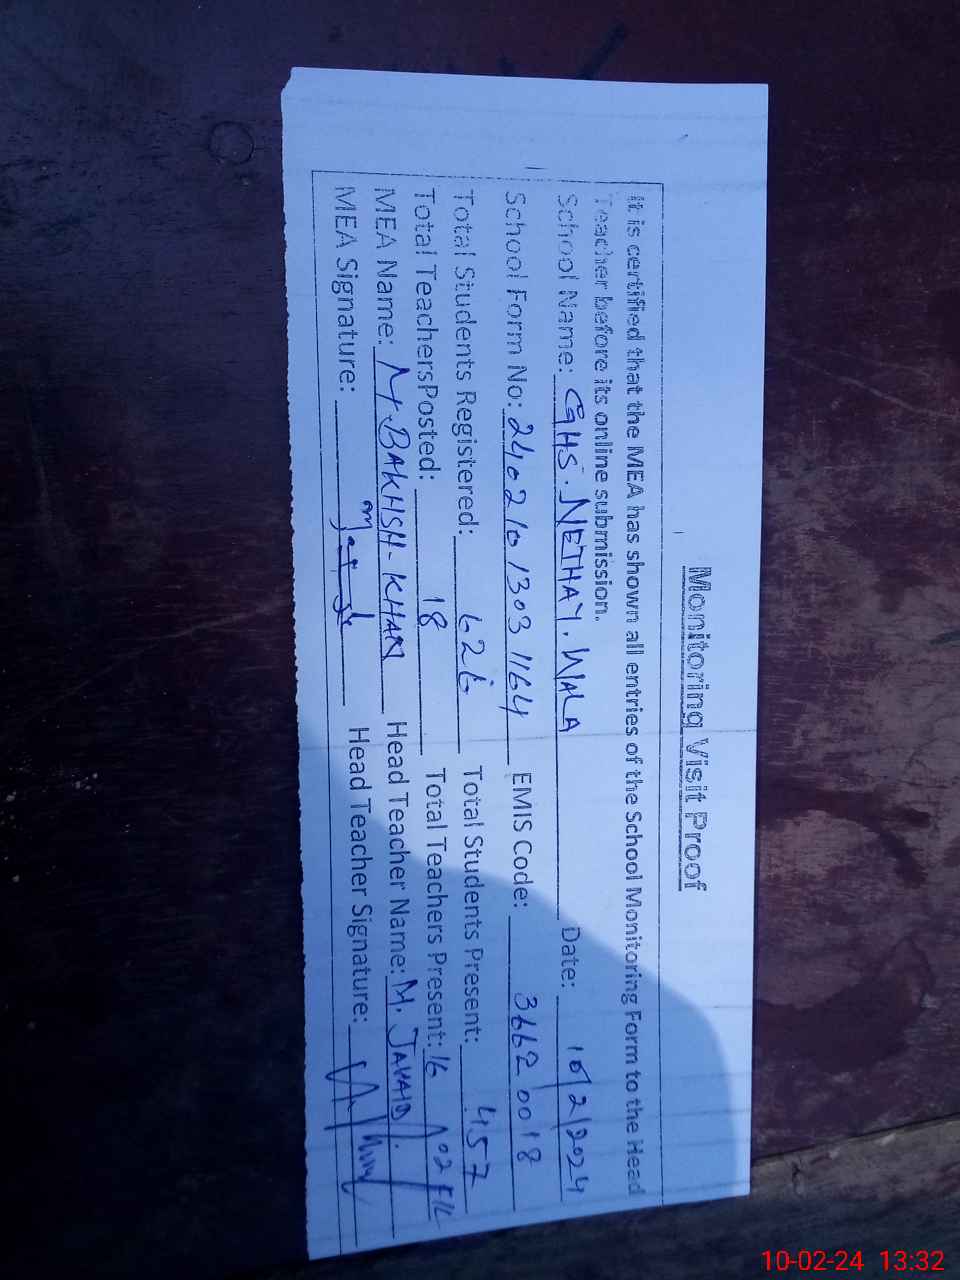 Monitoring Visit Proof
It is certified that the MEA has shown all entries of the School Monitoring Form to the Head
Teacher before its online submission.
School Name: GHS. NETHAY. WALA Date: 10/2/2024
School Form No: 24021013031164 EMIS Code: 36620018
Total Students Registered: 626 Total Students Present: 457
Total TeachersPosted: 18 Total Teachers Present: 16
MEA Name: M. BAKHSH-KHAN Head Teacher Name: M. JAVAID
MEA Signature: Head Teacher Signature:
10-02-24 13:32